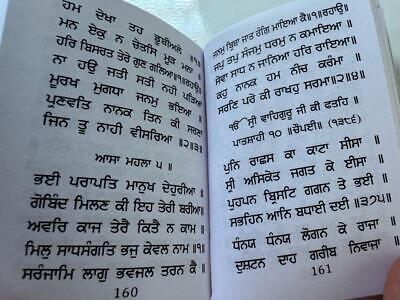 ਹਮ ਦੇਖਾ ਤਹ
ਮਨ ਏਕੁ ਨ ਚੇਤਸਿ ਮੂੜ ਮਨਾ ॥
ਹਰਿ ਬਿਸਰਤ ਤੇਰੇ ਗੁਣ ਗਲਿਆ॥੧॥ਰਹਾਉ॥
ਨਾ ਹਉ ਜਤੀ ਸਤੀ ਨਹੀ ਪੜਿਆ
ਮੂਰਖ ਮੁਗਧਾ ਜਨਮੁ ਭਇਆ ॥
ਪ੍ਰਣਵਤਿ ਨਾਨਕ ਤਿਨ ਕੀ ਸਰਣਾ
ਜਿਨ ਤੂ ਨਾਹੀ ਵੀਸਰਿਆ ॥੨॥੩॥
ਆਸਾ ਮਹਲਾ ੫ ॥
ਭਈ ਪਰਾਪਤਿ ਮਾਨੁਖ ਦੇਹੁਰੀਆ ॥
ਗੋਬਿੰਦ ਮਿਲਣ ਕੀ ਇਹ ਤੇਰੀ ਬਰੀਆ॥
ਅਵਰਿ ਕਾਜ ਤੇਰੈ ਕਿਤੈ ਨ ਕਾਮ ॥
ਮਿਲੁ ਸਾਧਸੰਗਤਿ ਭਜੁ ਕੇਵਲ ਨਾਮ॥੧॥
ਸਰੰਜਾਮਿ ਲਾਗੁ ਭਵਜਲ ਤਰਨ ਕੈ ॥
160
ਜਨਮੁ ਬ੍ਰਿਥਾ ਜਾਤ ਰੰਗਿ ਮਾਇਆ ਕੈ॥੧॥ਰਹਾਉ॥
ਜਪੁ ਤਪੁ ਸੰਜਮੁ ਧਰਮੁ ਨ ਕਮਾਇਆ ॥
ਸੇਵਾ ਸਾਧ ਨ ਜਾਨਿਆ ਹਰਿ ਰਾਇਆ ॥
ਕਹੁ ਨਾਨਕ ਹਮ ਨੀਚ ਕਰੰਮਾ ॥
ਸਰਣਿ ਪਰੇ ਕੀ ਰਾਖਹੁ ਸਰਮਾ॥੨॥੪॥
ੴ ਸ੍ਰੀ ਵਾਹਿਗੁਰੂ ਜੀ ਕੀ ਫਤਹਿ ॥
ਪਾਤਸ਼ਾਹੀ ੧੦ ॥ ਚੌਪਈ॥ (੧੩੮੬)
ਪੁਨਿ ਰਾਛਸ ਕਾ ਕਾਟਾ ਸੀਸਾ ॥
ਸ੍ਰੀ ਅਸਿਕੇਤ ਜਗਤ ਕੇ ਈਸਾ ॥
ਪੁਹਪਨ ਬ੍ਰਿਸਟਿ ਗਗਨ ਤੇ ਭਈ ॥
ਸਭਹਿਨ ਆਨਿ ਬਧਾਈ ਦਈ ॥੩੭੫॥
ਧੰਨਯ ਧੰਨਯ ਲੋਗਨ ਕੇ ਰਾਜਾ ॥
ਦੁਸ਼ਟਨ ਦਾਹ ਗਰੀਬ ਨਿਵਾਜਾ ॥
161